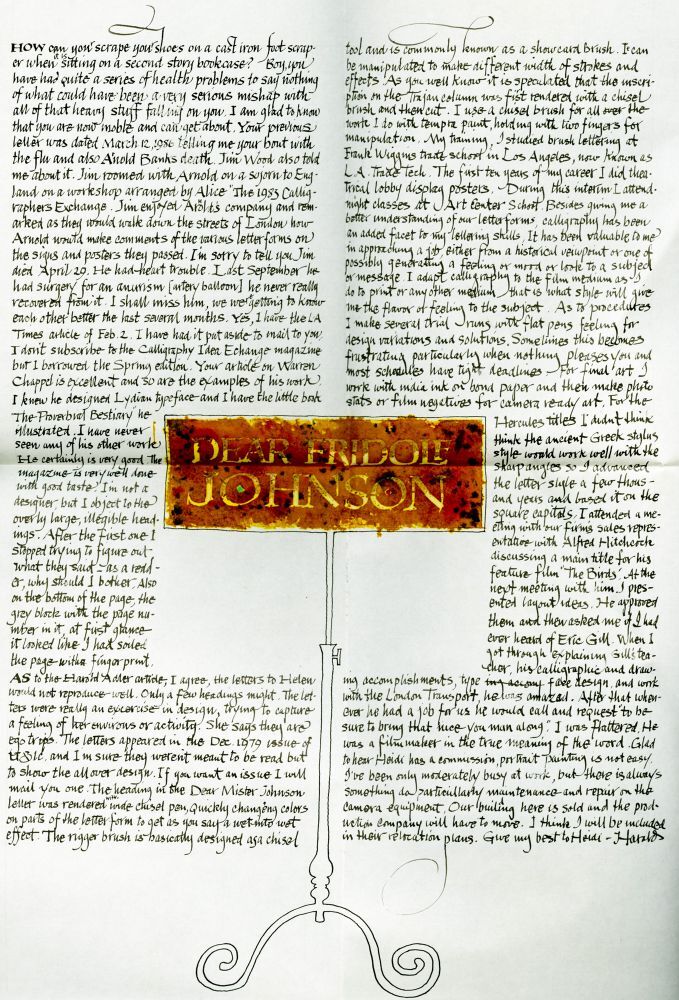 DEAR FRIDOLF
JOHNSON
HOW can you scrape you shoes on a cast iron foot scrap-
er when it is sitting on a second story bookcase? Boy, you
have had quite a series of health problems to say nothing
of what could have been a very serious mishap with
all of that heavy stuff falling on you. I am glad to know
that you are now moble and can get about. Your previous
letter was dated March 12, 1986 telling me your bout with
the flu and also Anold Banks death. Jim Wood also told
me about it. Jim roomed with Arnold on a sojorn to Eng-
land on a workshop arranged by Alice "The 1983 Callig-
raphers Exchange. Jim enjoyed Arold's company and rem-
arked as they would walk down the streets of London how
Arnold would make comments of the various letterforms on
the signs and posters they passed. I'm sorry to tell you Jim
died April 29. He had heart trouble. Last September he
had surgery for an anurism (artery balloon) he never really
recovered from it. I shall miss him, we were getting to know
each other better the last several months. Yes, I have the LA
Times article of Feb. 2. I have had it put aside to mail to you.
I don't subscribe to the Calligraphy Idea Echange magazine
but I borrowed the Spring edition. Your article on Warren
Chappel is excellent and so are the examples of his work.
I knew he designed Lydian typeface and I have the little book
The Proverbial Bestiary he
illustrated. I have never
seen any of his other work
He certainly is very good. The
magazine is very well done
with good taste. I'm not a
designer, but I object to the
overly large, illegible head-
ings. After the first one I
stopped trying to figure out
what they said - as a read-
er, why should I bother. Also
on the bottom of the page, the
grey block with the page nu-
mber in it, at first glance
it looked like I had soiled
the page with a fingerprint.
AS to the Harold Adler article, I agree, the letters to Helen
would not reproduce well. Only a few headings might. The let-
ters were really an excercise in design, trying to capture
a feeling of her environs or activity. She says they are
ego trips. The letters appeared in the Dec. 1979 issue of
U&lc. and I'm sure they werent meant to be read but
to show the all over design. If you want an issue I will
mail you one. The heading in the Dear Mister Johnson
letter was rendered with wide chisel pen, quickly changing colors
on parts of the letter form to get as you say a wet into wet
effect. The rigger brush is basically designed as a chisel
tool and is commonly known as a showcard brush. It can
be manipulated to make different width of strokes and
effects. As you well know it is speculated that the inscri-
ption on the Trajan column was fist rendered with a chisel
brush and then cut. I use a chisel brush for all over the
work I do with tempra paint, holding with two fingers for
manipulation. My training, I studied brush lettering at
Frank Wiggins trade school in Los Angeles, now known as
L.A. Trade Tech. The first ten years of my career I did thea-
trical lobby display posters. During this interim I attend-
night classes at Art Center School. Besides giving me a
better understanding of our letterforms, calligraphy has been
an added facet to my lettering skills. It has been valuable to me
in approaching a job, either from a historical viewpoint or one of
possibly generating a feeling or mood or look to a subject
or message. I adapt calligraphy to the film medium as I
do to print or any other medium, that is what style will give
me the flavor or feeling to the subject. As to procedures
I make several trial runs with flat pens feeling for
design variations and solutions. Sometimes this becomes
frustrating particularly when nothing pleases you and
most schedules have tight deadlines. For final art I
work with india ink on bond paper and then make photo
stats or film negatives for camera ready art. For the
Hercules titles I didn't think
think the ancient Greek stylus
style would work well with the
sharp angles so I advanced
the letter style a few thous-
and years and based it on the
square capitals. I attended a me-
eting with our firm's sales repres-
entative with Alfred Hitchcock
discussing a main title for his
feature film "The Birds". At the
next meeting with him, I pres-
ented layout ideas. He approved
them and then asked me if I had
ever heard of Eric Gill. When I
got through explaining Gill's tea-
cher, his calligraphic and draw-
ing accomplishments, type face design, and work
with the London Transport, he was amazed. After that when-
ever he had a job for us he would call and request "to be
sure to bring that nice young man along". I was flattered. He
was a filmmaker in the true meaning of the word. Glad
to hear Heidi has a commission, portrait painting is not easy.
I've been only moderately busy at work, but there is always
something do, particularly maintenance and repair on the
camera equipment. Our builing here is sold and the prod-
uction company will have to move. I think I will be included
in their relocation plans. Give my best to Heidi - Harold